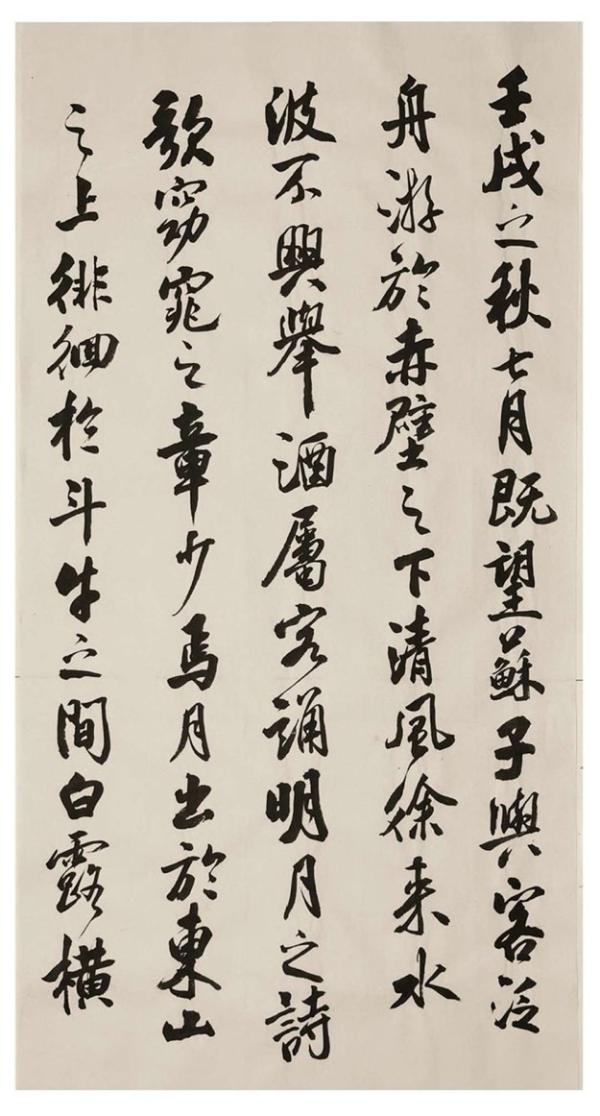 壬戌之秋七月既望蘇子與客泛
舟游於赤壁之下清風徐来水
波不興舉酒屬客誦明月之詩
歌窈窕之章少焉月出於東山
之上徘徊於斗牛之間白露橫